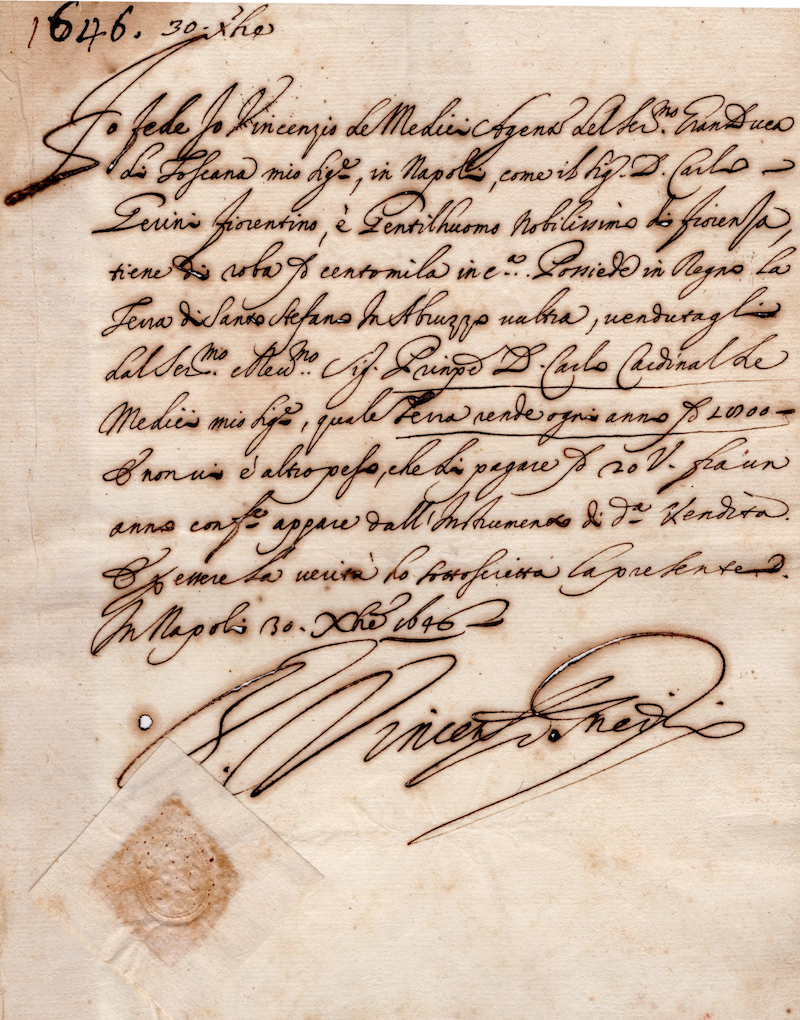 1646. 30. Xbre
Fo fede Io Vincenzio de Medici Agente del Ser.mo Gran Duca
di Toscana mio Sig.re, in Napoli, come il Sig. D. Carlo
Gerini fiorentino, è Gentilhuomo Nobilissimo di fiorenza,
tiene di roba D centomila in c.a. Possiede in Regno la
Terra di Santo Stefano In Abruzzo ultra, vendutagli
dal Ser.mo e Reu.mo Sig. Prinpe D. Carlo Cardinal de
Medici mio Sig.re, quale Terra rende ogni anno D
& non ui è altro peso, che di pagare D 20 V. fra un
anno conf.e appare dall'Instrumento di d.a Vendita.
& p essere la verità ho sottoscritta la presente.
In Napoli 30. Xbre 1646
Vincenzo Medici